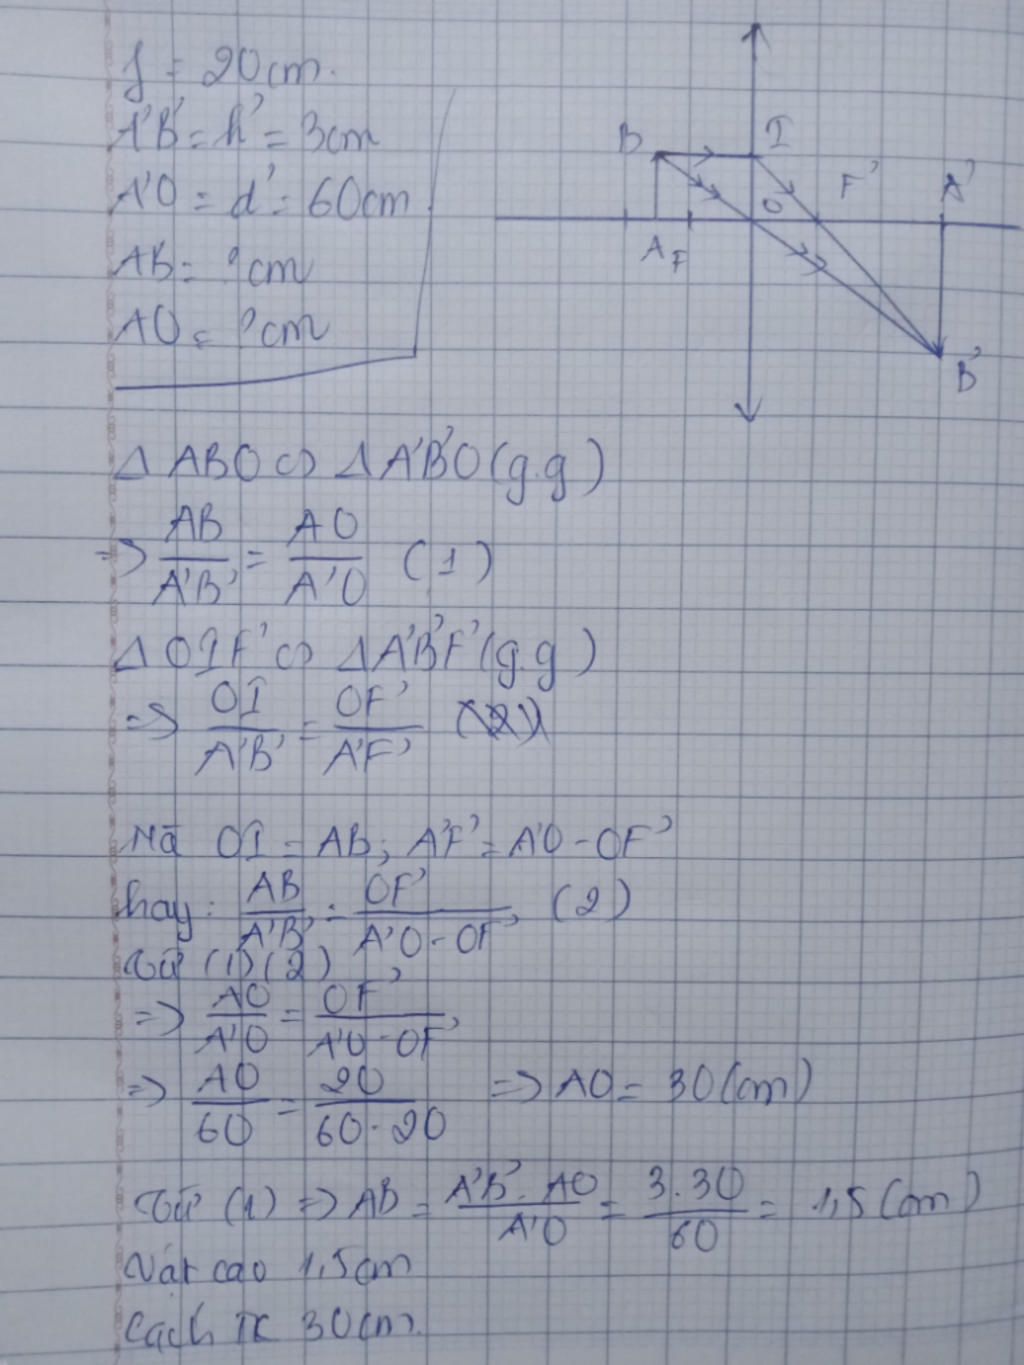 f = 20cm.
A'B' = h' = 3cm
A'O = d' = 60cm.
AB = ? cm
AO = ? cm
B I
O F' A'
A F
B'
Δ ABO ∽ Δ A'B'O (g.g)
=> AB/A'B' = AO/A'O (1)
Δ OIF' ∽ Δ A'B'F' (g.g)
=> OI/A'B' = OF'/A'F'
Mà OI = AB; A'F' = A'O - OF'
hay: AB/A'B' = OF'/A'O - OF' (2)
Từ (1)(2)
=> AO/A'O = OF'/A'O - OF'
=> AO/60 = 20/60 - 20 => AO = 30(cm)
Từ (1) => AB = A'B'. AO/A'O = 3.30/60 = 1,5(cm)
Vật cao 1,5cm
Cách TK 30cm.